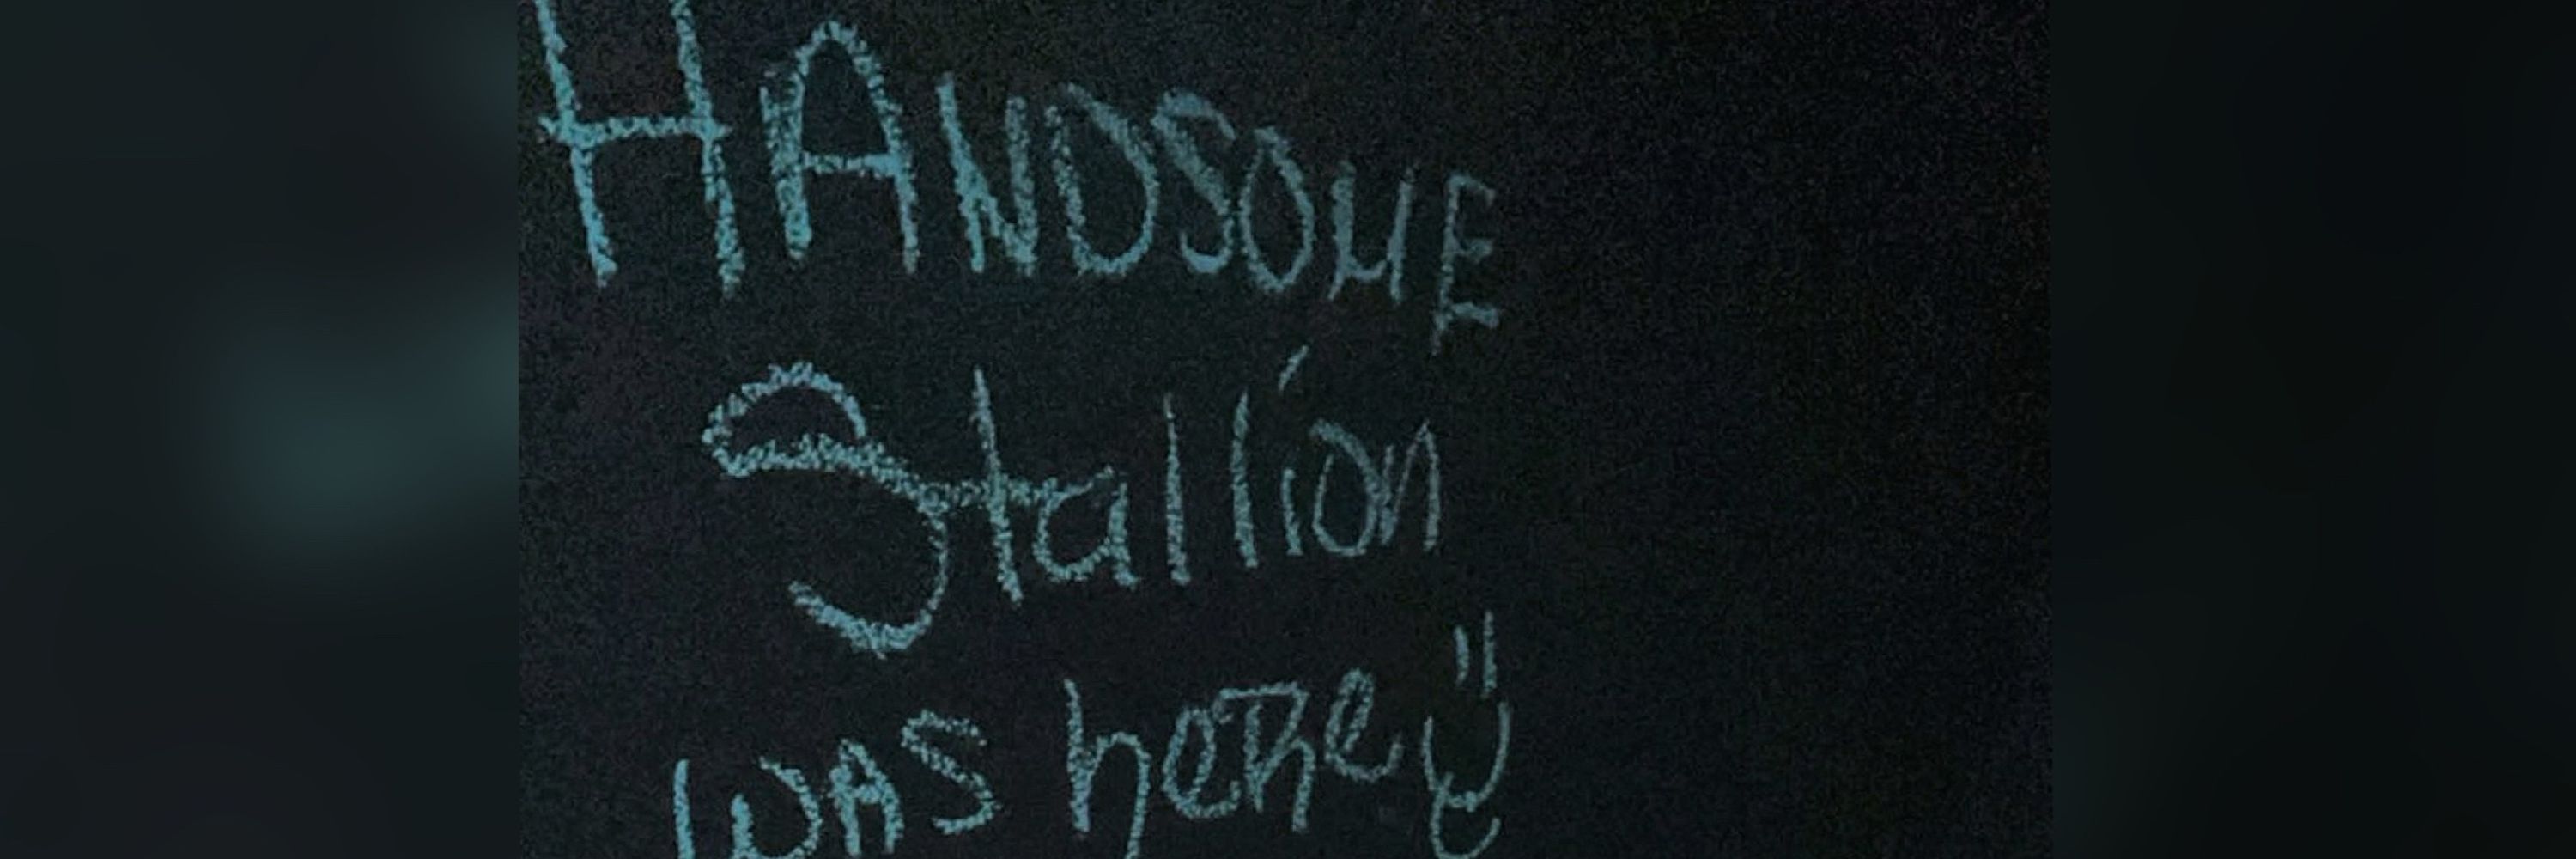 HANDSOME
Stallion
WAS heRe